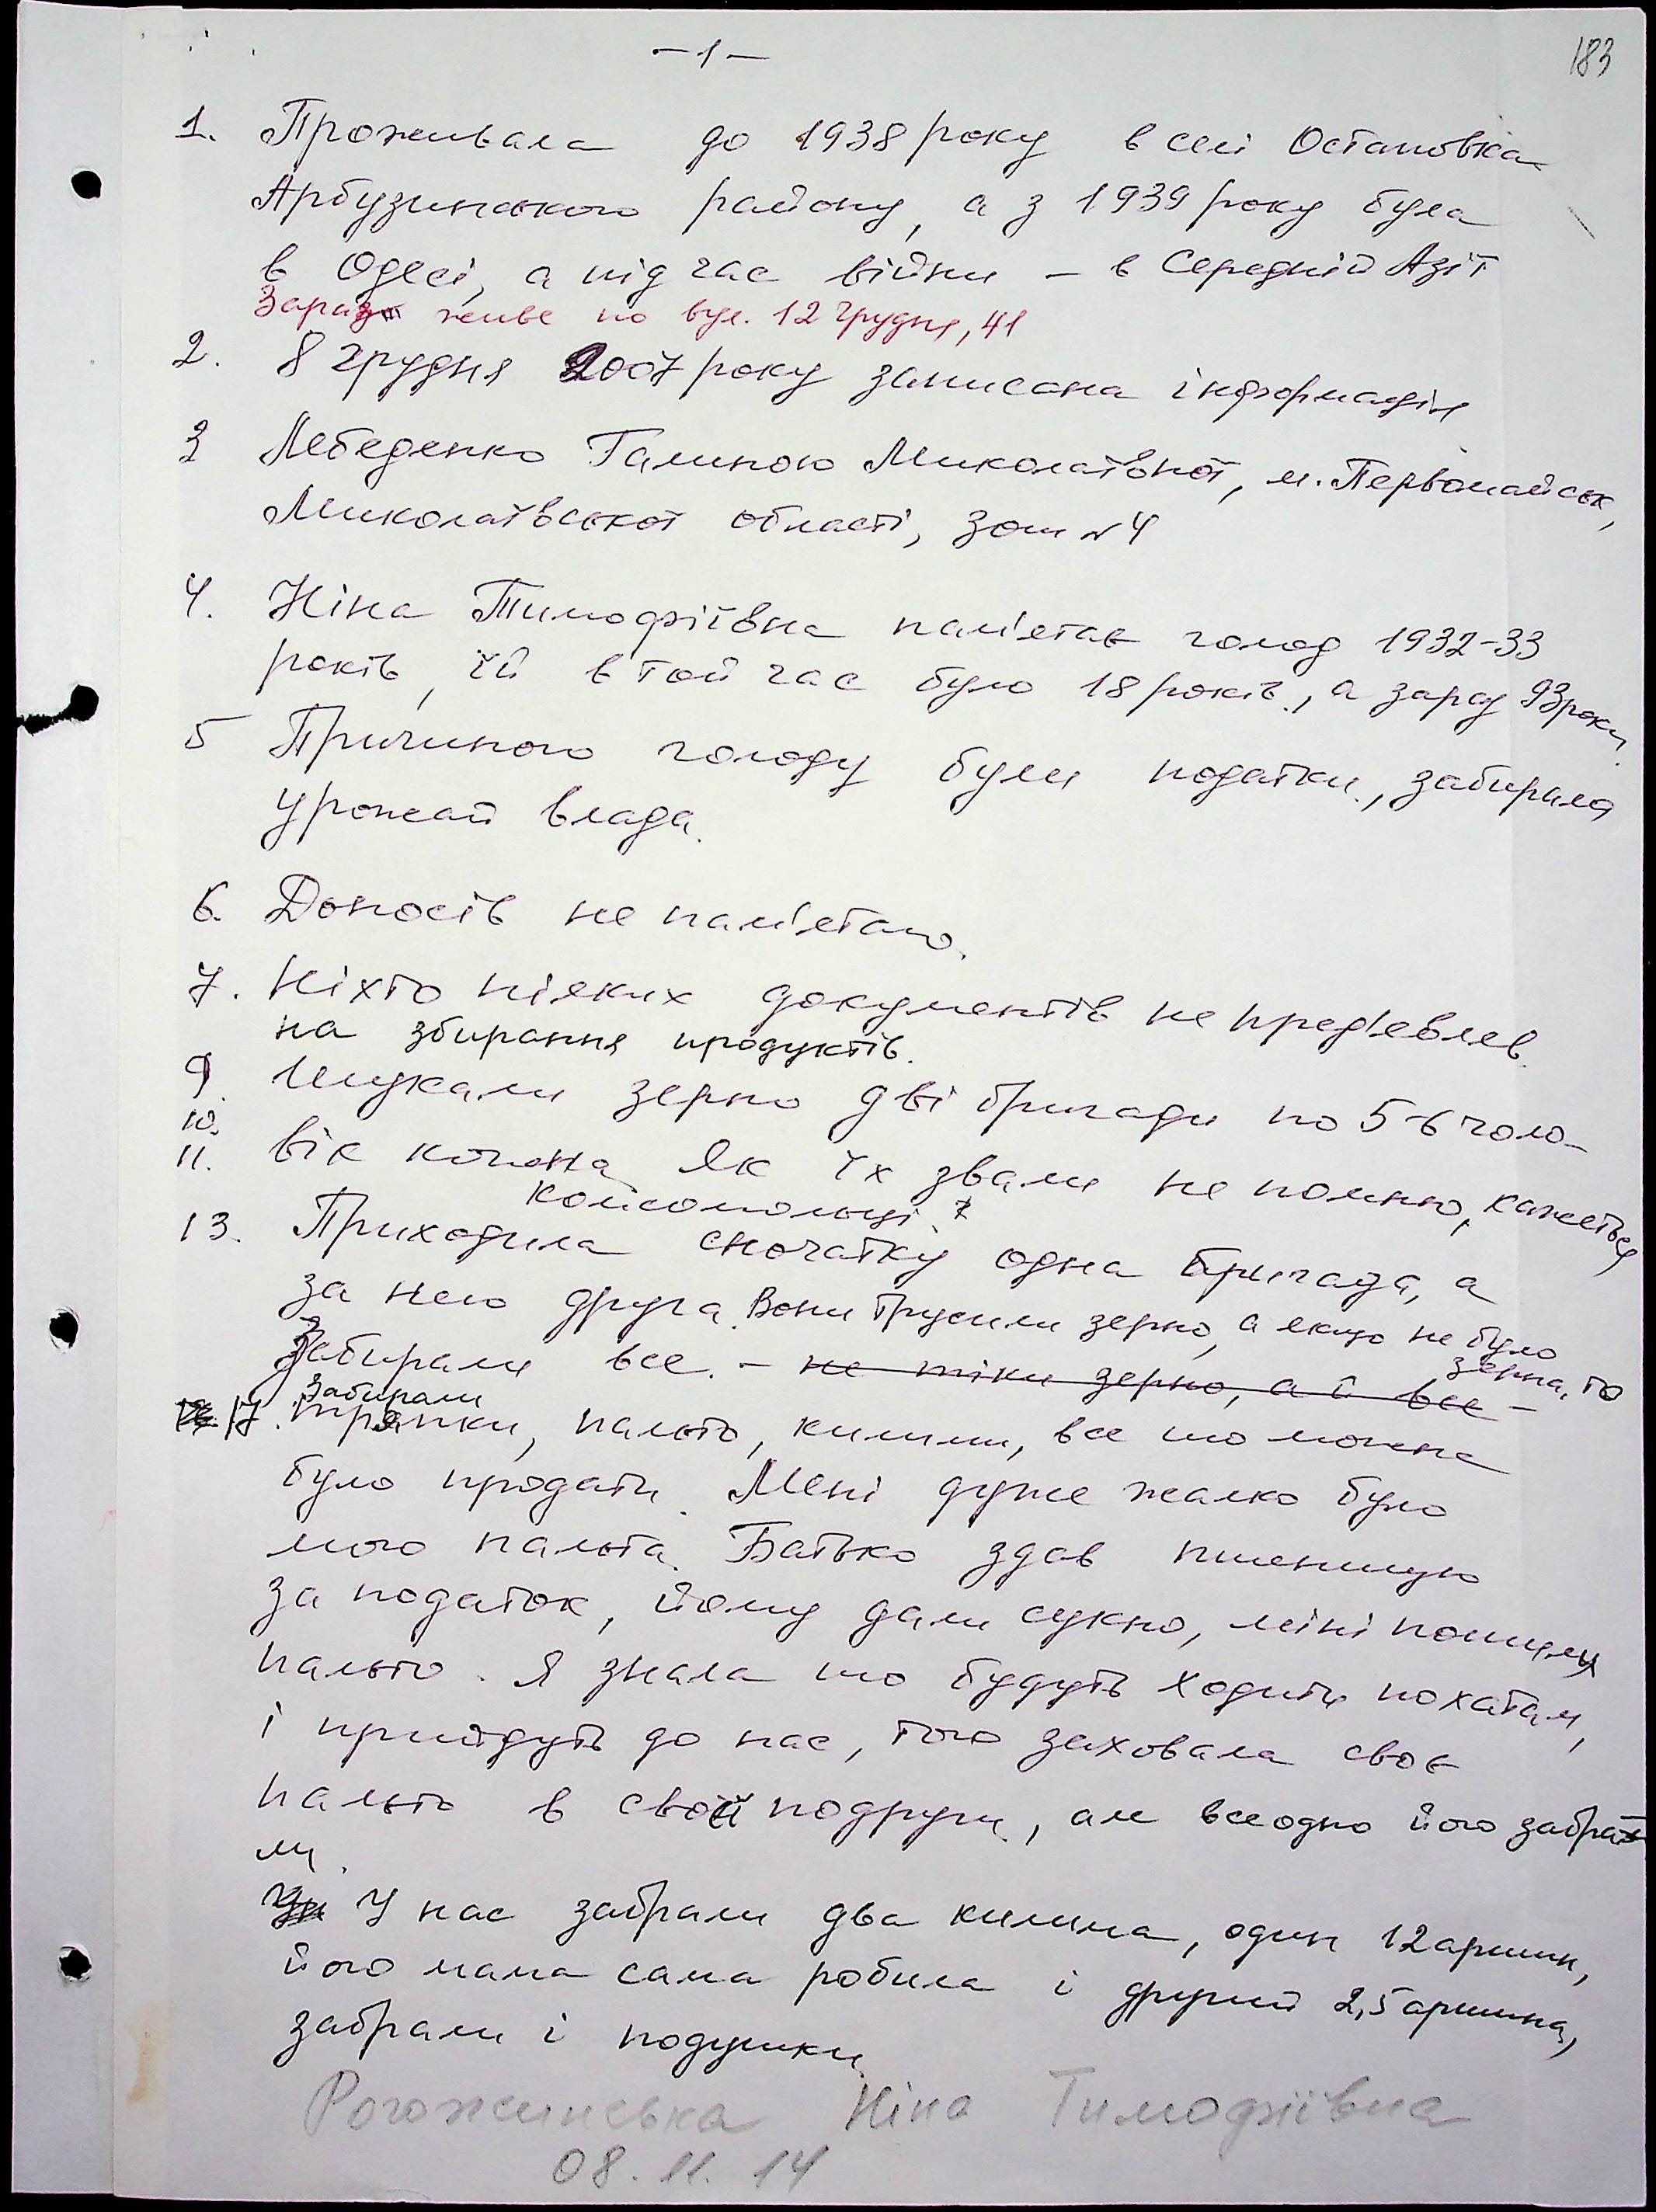 – 1 –
183
1. Проживала до 1938 року в селі Остановка
Арбузинського району, а з 1939 року була
в Одесі, а під час війни – в Середній Азії
Зараз живе по вул. 12 Грудня, 41
2. 8 грудня 2007 року записана інформація
3 Лебеденко Галиною Миколаївної, м. Первомайськ,
Миколаївської області, зош №4
4. Ніна Тимофіївна пам'ятає голод 1932-33
років, їй в той час було 18 років, а зараз 93 роки.
5 Причиною голоду були податки, забирала
урожай влада.
6. Доносів не пам'ятаю.
7. Ніхто ніяких документів не пред'являв
на збирання продуктів.
9. Шукали зерно дві бригади по 5-6 чоло-
10.
11. вік кожна. Як їх звали не помню, кажеться
комсомольці.
13. Приходила спочатку одна бригада, а
за нею друга. Вони трусили зерно, а якщо не було
зерна, то
забирали все. – не тіки зерно, а й все –
забирали
17. тряпки, пальто, килими, все що можна
було продати. Мені дуже жалко було
мого пальта. Батько здав пшеницю
за податок, йому дали сукно, міні пошили
пальто. Я знала що будуть ходить по хатам,
і прийдуть до нас, того заховала своє
пальто в своєй подруги, але все одно його забра-
ли.
У нас забрали два килима, один 12 аршин,
його мама сама робила і другий 2,5 аршина,
забрали і подушки.
Рогожинська Ніна Тимофіївна
08. 11. 14